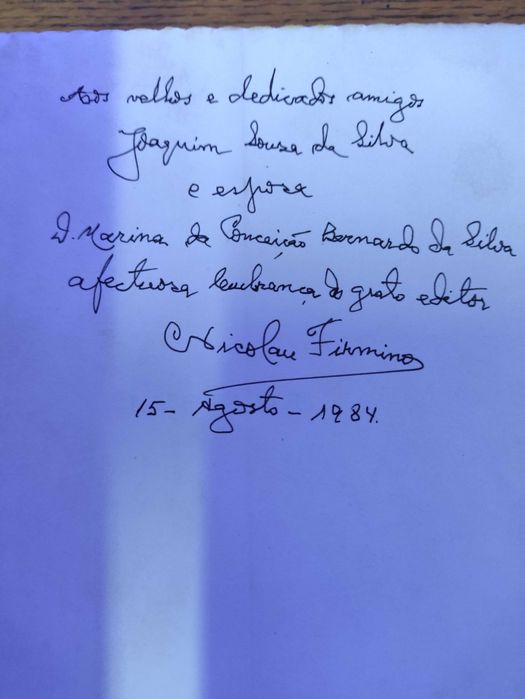 Aos velhos e dedicados amigos
Joaquim Sousa da Silva
e esposa
D. Marina da Conceição Bernardo da Silva
afectuosa lembrança do grato editor
Nicolau Firmino
15 - Agosto - 1984.